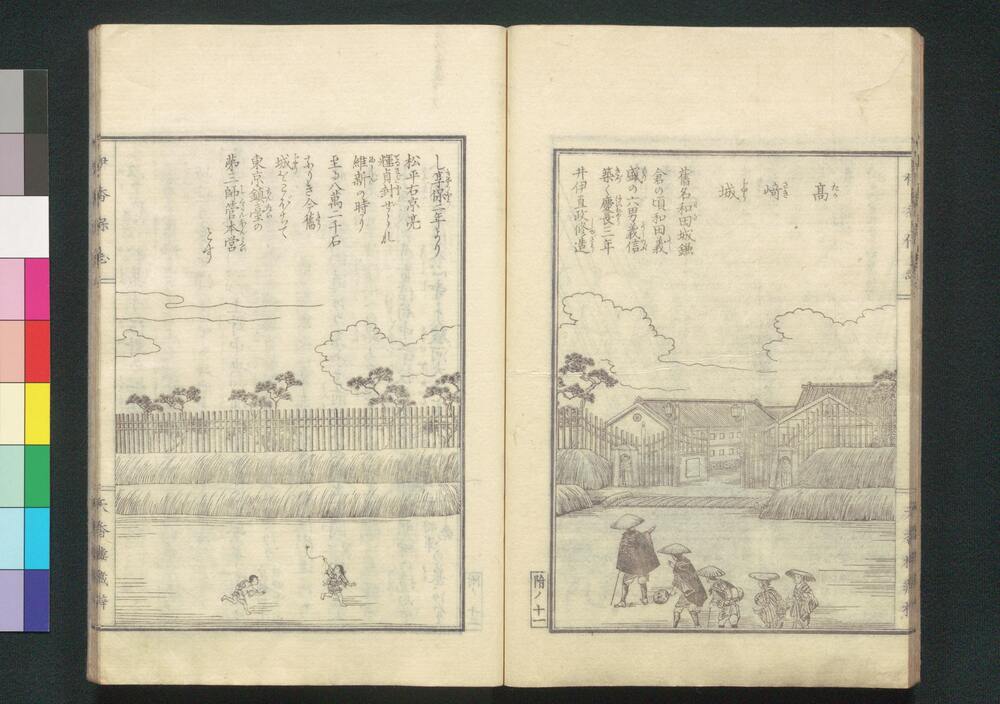 高崎城
舊名和田城鎌
倉の頃和田義
盛の六男義信
築く慶長三年
井伊直政修造
附ノ十一
し享保二年より
松平右京亮
輝貞封せられ
維新の時り
至る八萬二千石
なりき今舊
城をこぼちて
東京鎮臺の
第三師管本営
とす